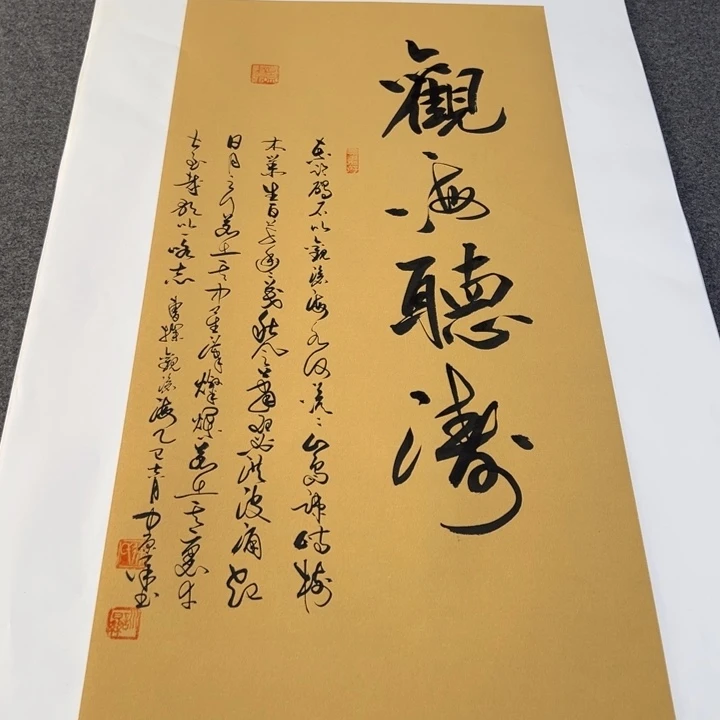 觀海聽濤
東臨碣石以觀滄海水何澹澹山島竦峙樹
木叢生百草豐茂秋風蕭瑟洪波湧起
日月之行若出其中星漢燦爛若出其裏幸
甚至哉歌以詠志 曹操觀滄海乙巳 月 書